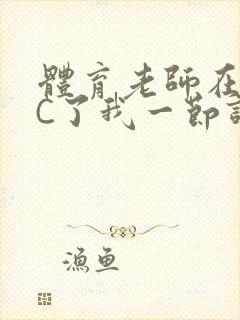 體育老師在
C了我一節
漁魚